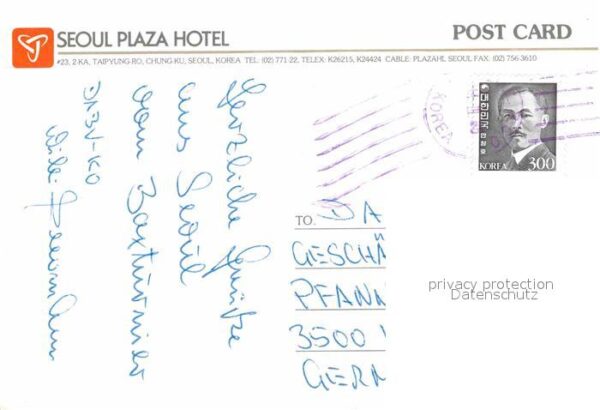 SEOUL PLAZA HOTEL
POST CARD
#23, 2-KA, TAIPYUNG-RO, CHUNG-KU, SEOUL, KOREA TEL: (02) 771-22, TELEX: K26215, K24424 CABLE: PLAZAHL SEOUL FAX: (02) 756-3610
Herzliche Grüße
aus Seoul
vom
대한민국
KOREA 300
KOREA
TO. DA
GESCHÄ
PFANN
3500
GERM
privacy protection
Datenschutz